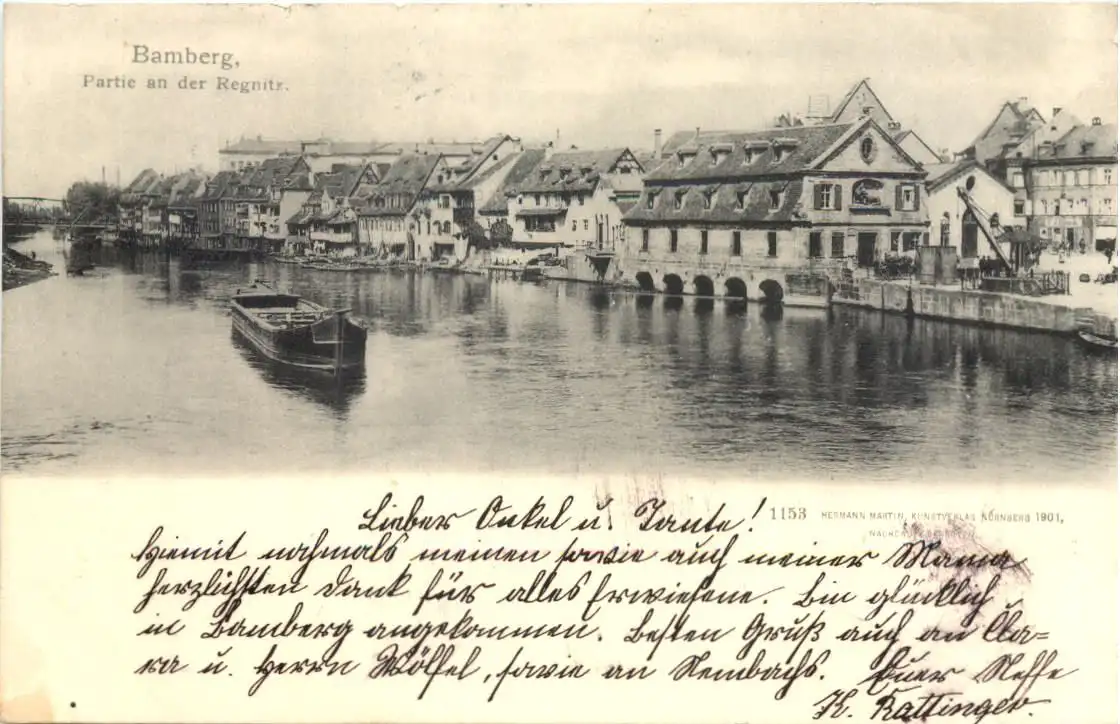 Bamberg,
Partie an der Regnitz.
1153 HERMANN MARTIN, KUNSTVERLAG NÜRNBERG 1901,
Lieber Onkel u. Tante!
Hiemit nochmals meinen sowie auch meiner Mama
herzlichsten Dank für alles Erwiesene. Bin glücklich
in Bamberg angekommen. Besten Gruß auch an Cla=
ra u. Herrn Wölfel, sowie an Rembachs. Euer Neffe
K. Rattinger.